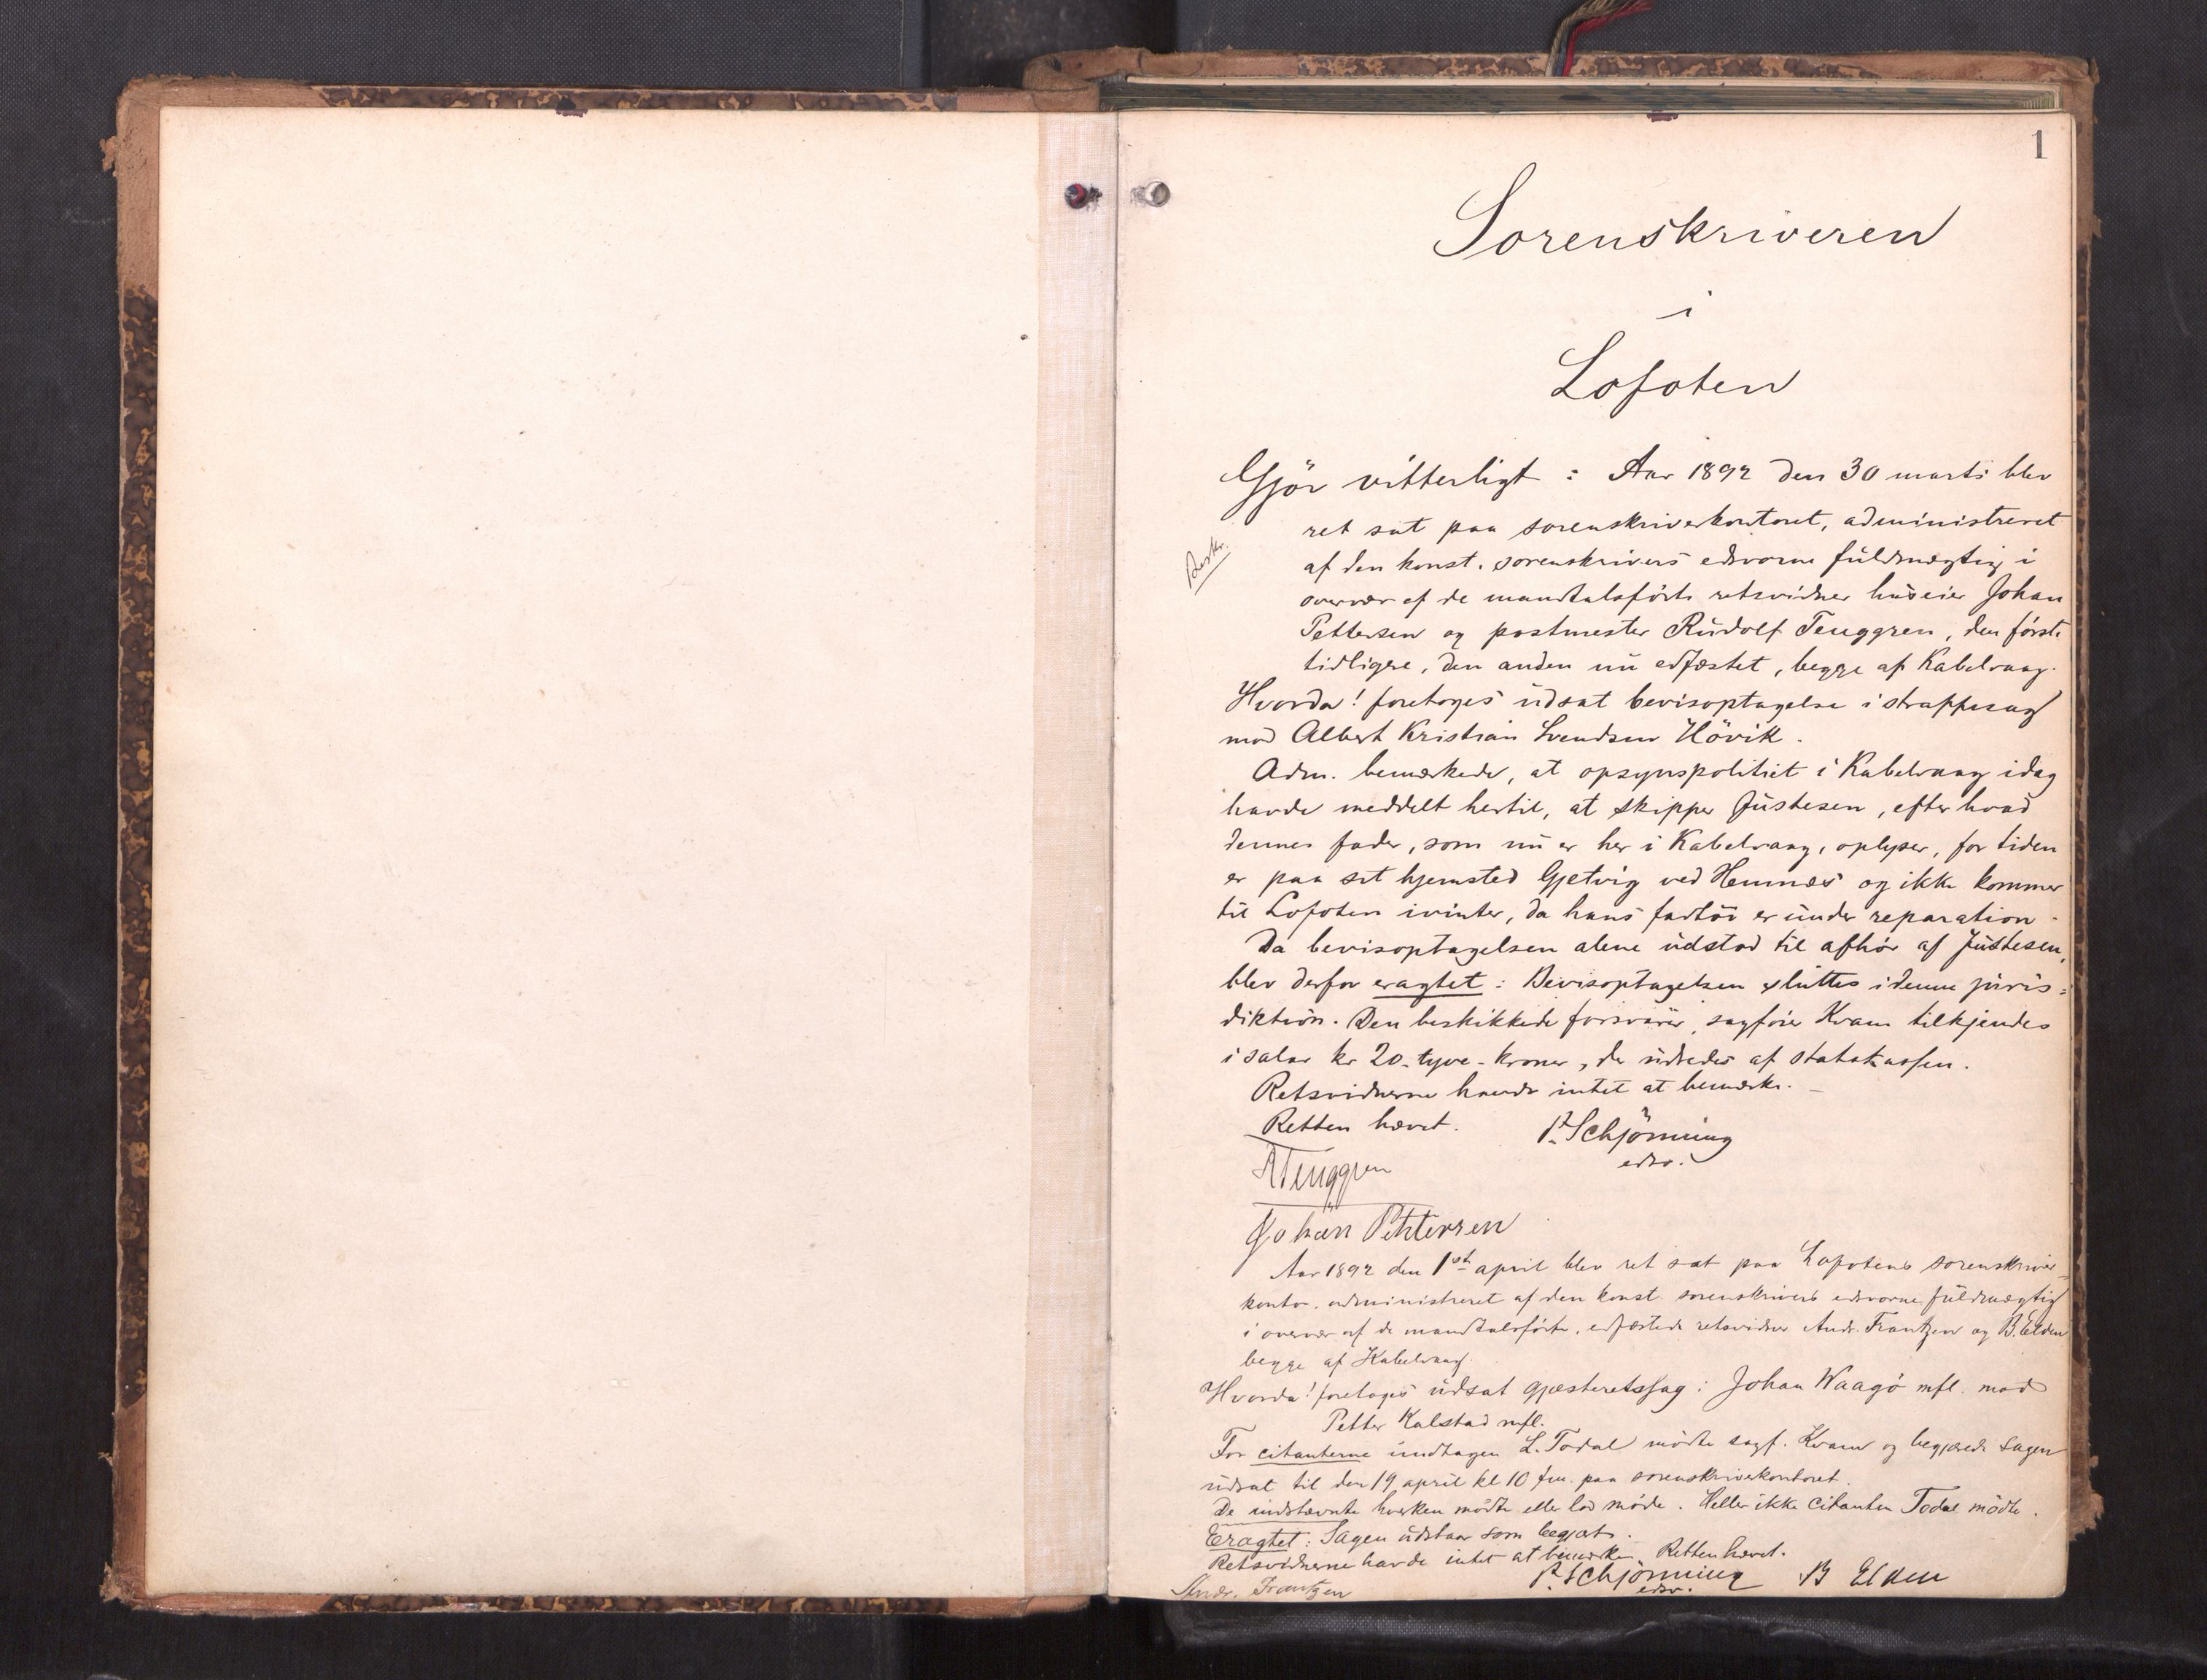 1
Sorenskriveren
i
Lofoten
Gjör vitterligt: Aar 1892 den 30 marts blev
ret sat paa sorenskriverkontoret, administreret
Beskr.
af den konst. sorenskrivers edsvorne fuldmægtig i
overvær af de mandtalsförte retsvidner huseier Johan
Pettersen og postmester Rudolf Tenggren, den förste
tidligere, den anden nu edfæstet, begge af Kabelvaag.
Hvorda! foretoges udsat bevisoptagelse i straffesag
mod Albert Kristian Svendsen Hövik.
Adm. bemærkede, at opsynspolitiet i Kabelvaag idag
havde meddelt hertil, at skipper Justesen, efter hvad
dennes fader, som nu er her i Kabelvaag, oplyser, for tiden
er paa sit hjemsted Gjetvig ved Hemnæs og ikke kommer
til Lofoten ivinter, da hans fartöi er under reparation.
Da bevisoptagelsen alene udstod til afhör af Justesen,
blev derfor eragtet: Bevisoptagelsen sluttes i denne juris=
diktion. Den beskikkede forsvarer, sagförer Kvam tilkjendes
i salar kr 20 - tyve - kroner, der udredes af statskassen.
Retsvidnerne havde intet at bemærke. -
Retten hævet. P. Schjönning
edsv.
R Tenggren
Johan Pettersen
Aar 1892 den 1st april blev ret sat paa Lofotens sorenskriver=
kontor, administreret af den konst. sorenskrivers edsvorne fuldmægtig
i overvær af de mandtalsförte, edfæstede retsvidner Andr. Frantzen og B. Elden
begge af Kabelvaag.
Hvorda! foretoges udsat gjæsteretssag: Johan Waagö mfl. mod
Petter Kalstad mfl.
For citanterne undtagen L. Todal mödte sagf. Kvam og begjærede sagen
udsat til den 19 april kl 10 fm. paa sorenskriverkontoret.
De indstævnte hverken mödte eller lod möde. Heller ikke citanten Todal mödte.
Eragtet: Sagen udstaar som begjært.
Retsvidnerne havde intet at bemærke. Retten hævet.
Andr. Frantzen P. Schjönning B Elden
edsv.